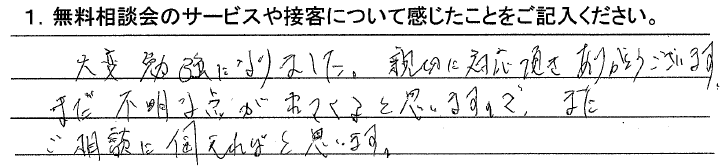 1. 無料相談会のサービスや接客について感じたことをご記入ください。
大変勉強になりました。親切に対応頂きありがとうございます
まだ不明な点がでてくると思いますので、また
ご相談に伺えればと思います。